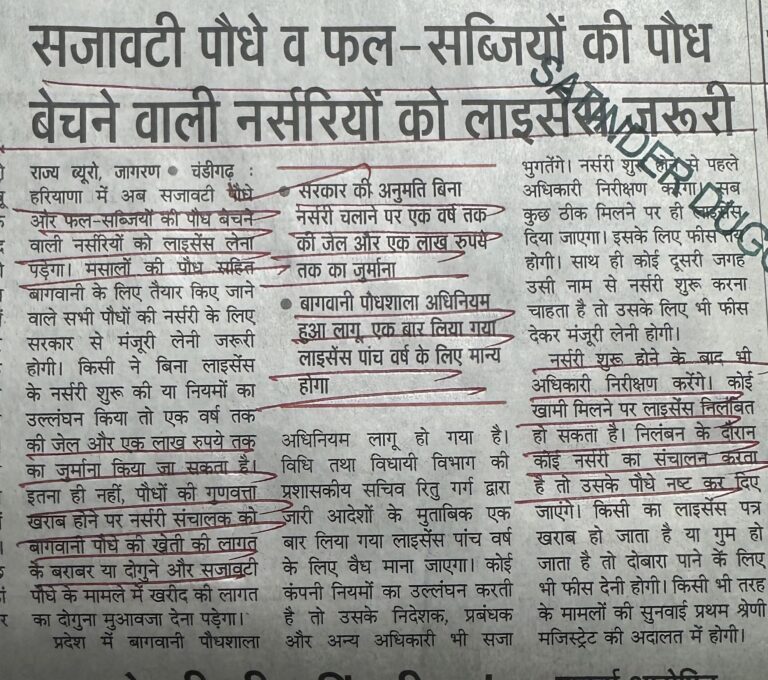 सजावटी पौधे व फल-सब्जियों की पौध
बेचने वाली नर्सरियों को लाइसेंस जरूरी
SATANDER DUGG
राज्य ब्यूरो, जागरण • चंडीगढ़ :
हरियाणा में अब सजावटी पौधे
और फल-सब्जियों की पौध बेचने
वाली नर्सरियों को लाइसेंस लेना
पड़ेगा। मसालों की पौध सहित
बागवानी के लिए तैयार किए जाने
वाले सभी पौधों की नर्सरी के लिए
सरकार से मंजूरी लेनी जरूरी
होगी। किसी ने बिना लाइसेंस
के नर्सरी शुरू की या नियमों का
उल्लंघन किया तो एक वर्ष तक
की जेल और एक लाख रुपये तक
का जुर्माना किया जा सकता है।
इतना ही नहीं, पौधों की गुणवत्ता
खराब होने पर नर्सरी संचालक को
बागवानी पौधे की खेती की लागत
के बराबर या दोगुने और सजावटी
पौधे के मामले में खरीद की लागत
का दोगुना मुआवजा देना पड़ेगा।
प्रदेश में बागवानी पौधशाला
• सरकार की अनुमति बिना
नर्सरी चलाने पर एक वर्ष तक
की जेल और एक लाख रुपये
तक का जुर्माना
• बागवानी पौधशाला अधिनियम
हुआ लागू, एक बार लिया गया
लाइसेंस पांच वर्ष के लिए मान्य
होगा
अधिनियम लागू हो गया है।
विधि तथा विधायी विभाग की
प्रशासकीय सचिव रितु गर्ग द्वारा
जारी आदेशों के मुताबिक एक
बार लिया गया लाइसेंस पांच वर्ष
के लिए वैध माना जाएगा। कोई
कंपनी नियमों का उल्लंघन करती
है तो उसके निदेशक, प्रबंधक
और अन्य अधिकारी भी सजा
भुगतेंगे। नर्सरी शुरू होने से पहले
अधिकारी निरीक्षण करेंगे। सब
कुछ ठीक मिलने पर ही लाइसेंस
दिया जाएगा। इसके लिए फीस तय
होगी। साथ ही कोई दूसरी जगह
उसी नाम से नर्सरी शुरू करना
चाहता है तो उसके लिए भी फीस
देकर मंजूरी लेनी होगी।
नर्सरी शुरू होने के बाद भी
अधिकारी निरीक्षण करेंगे। कोई
खामी मिलने पर लाइसेंस निलंबित
हो सकता है। निलंबन के दौरान
कोई नर्सरी का संचालन करता
है तो उसके पौधे नष्ट कर दिए
जाएंगे। किसी का लाइसेंस पत्र
खराब हो जाता है या गुम हो
जाता है तो दोबारा पाने के लिए
भी फीस देनी होगी। किसी भी तरह
के मामलों की सुनवाई प्रथम श्रेणी
मजिस्ट्रेट की अदालत में होगी।